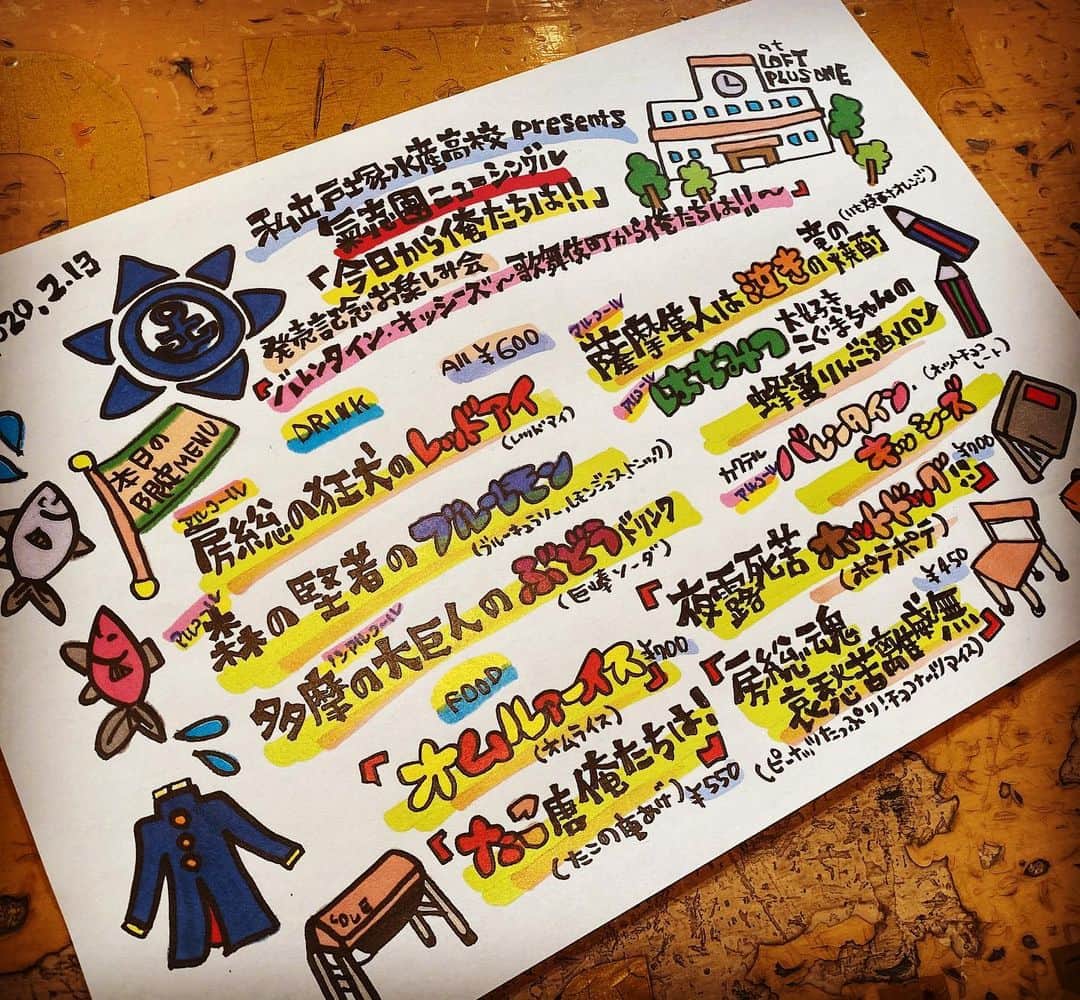 at
LOFT
PLUS ONE
私立戸塚水産高校 presents
氣志團ニューシングル
「今日から俺たちは!!」
発売記念お楽しみ会
『バレンタイン・オッシーズ〜歌舞伎町から俺たちは!!〜』
020.2.13
本日の
BREEMENU
DRINK
All ¥600
アルコール
房総の狂犬のレッドアイ
(レッドアイ)
アルコール
森の賢者のブルーレモン
(ブルーキュラソー・レモンジュース・トニック)
ノンアルコール
多摩の大巨人のぶどうドリンク
(巨峰ソーダ)
アルコール
薩摩偉人は泣きの
(いも焼酎オレンジ)
焼酎
アルコール
はちみつ
大好き
こぐまちゃんの
蜂蜜りんご酒メロン
カクテル
アルコール
バレンタイン・
キッシーズ
(ホットチョコレート)
FOOD
『オムルァーイス』
¥900
(オムライス)
『たこ唐俺たちは!』
(たこの唐あげ)
¥550
『夜露死苦ホットドッグ』
¥700
(ポテポテ)
¥450
『房総魂
哀愁苦離夢無』
(ピーナッツたっぷり!チョコナッツアイス)
LOVE